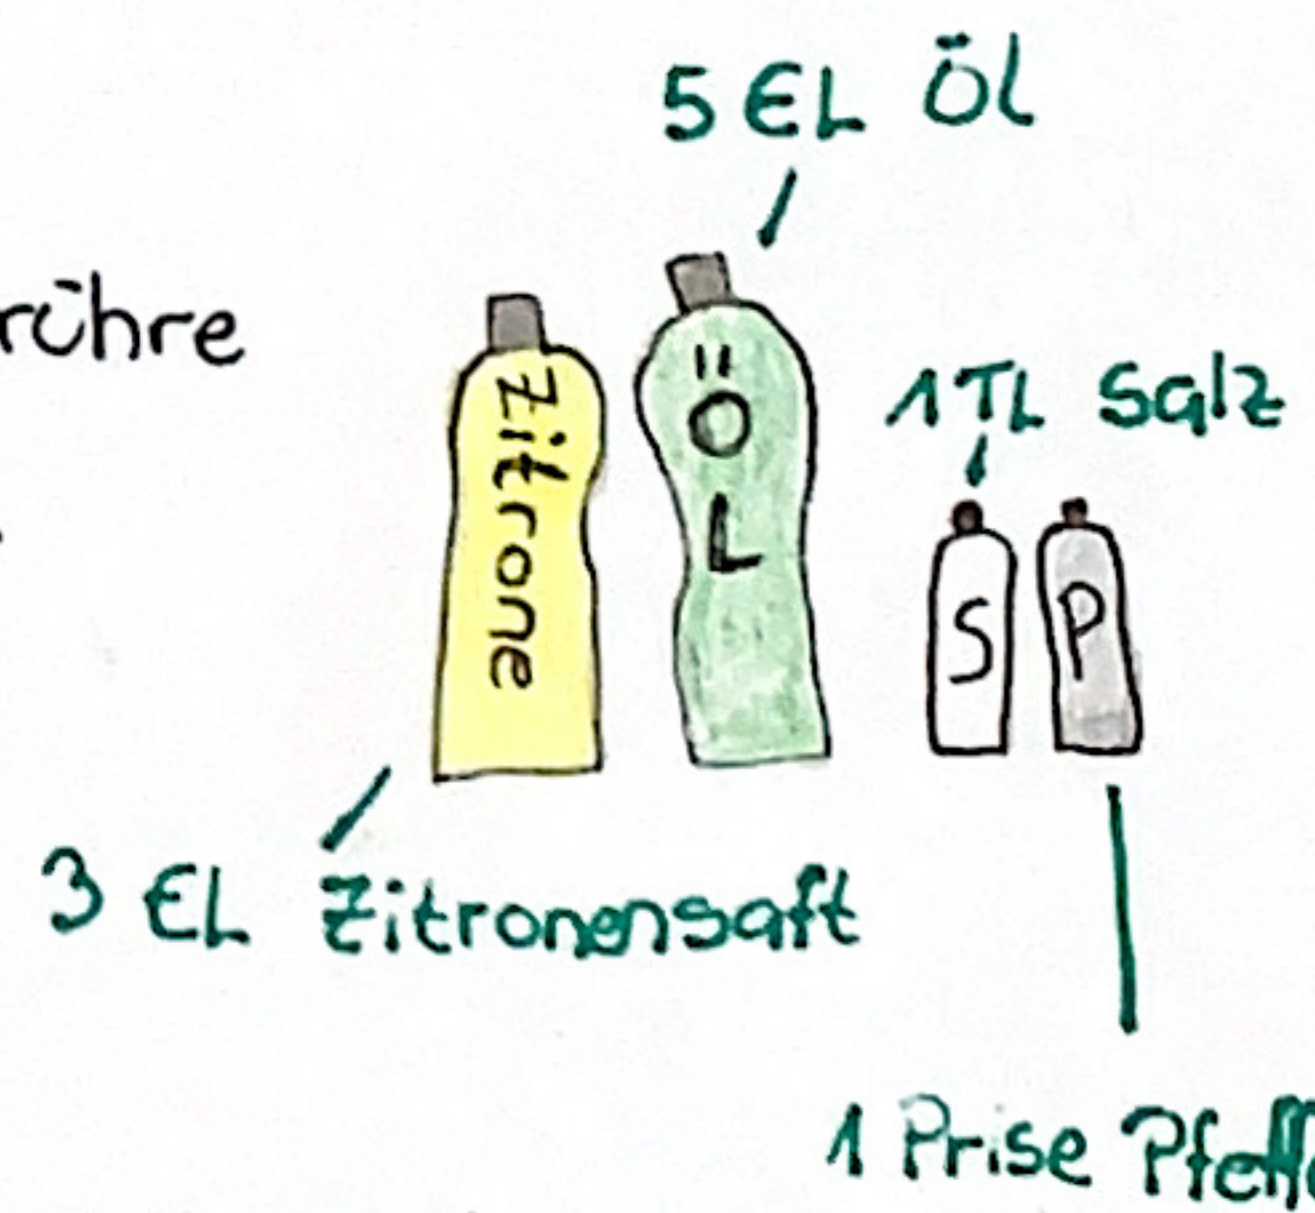 5 EL Öl
rühre
Zitrone
ÖL
1 TL Salz
S
P
3 EL Zitronensaft
1 Prise Pfeffe